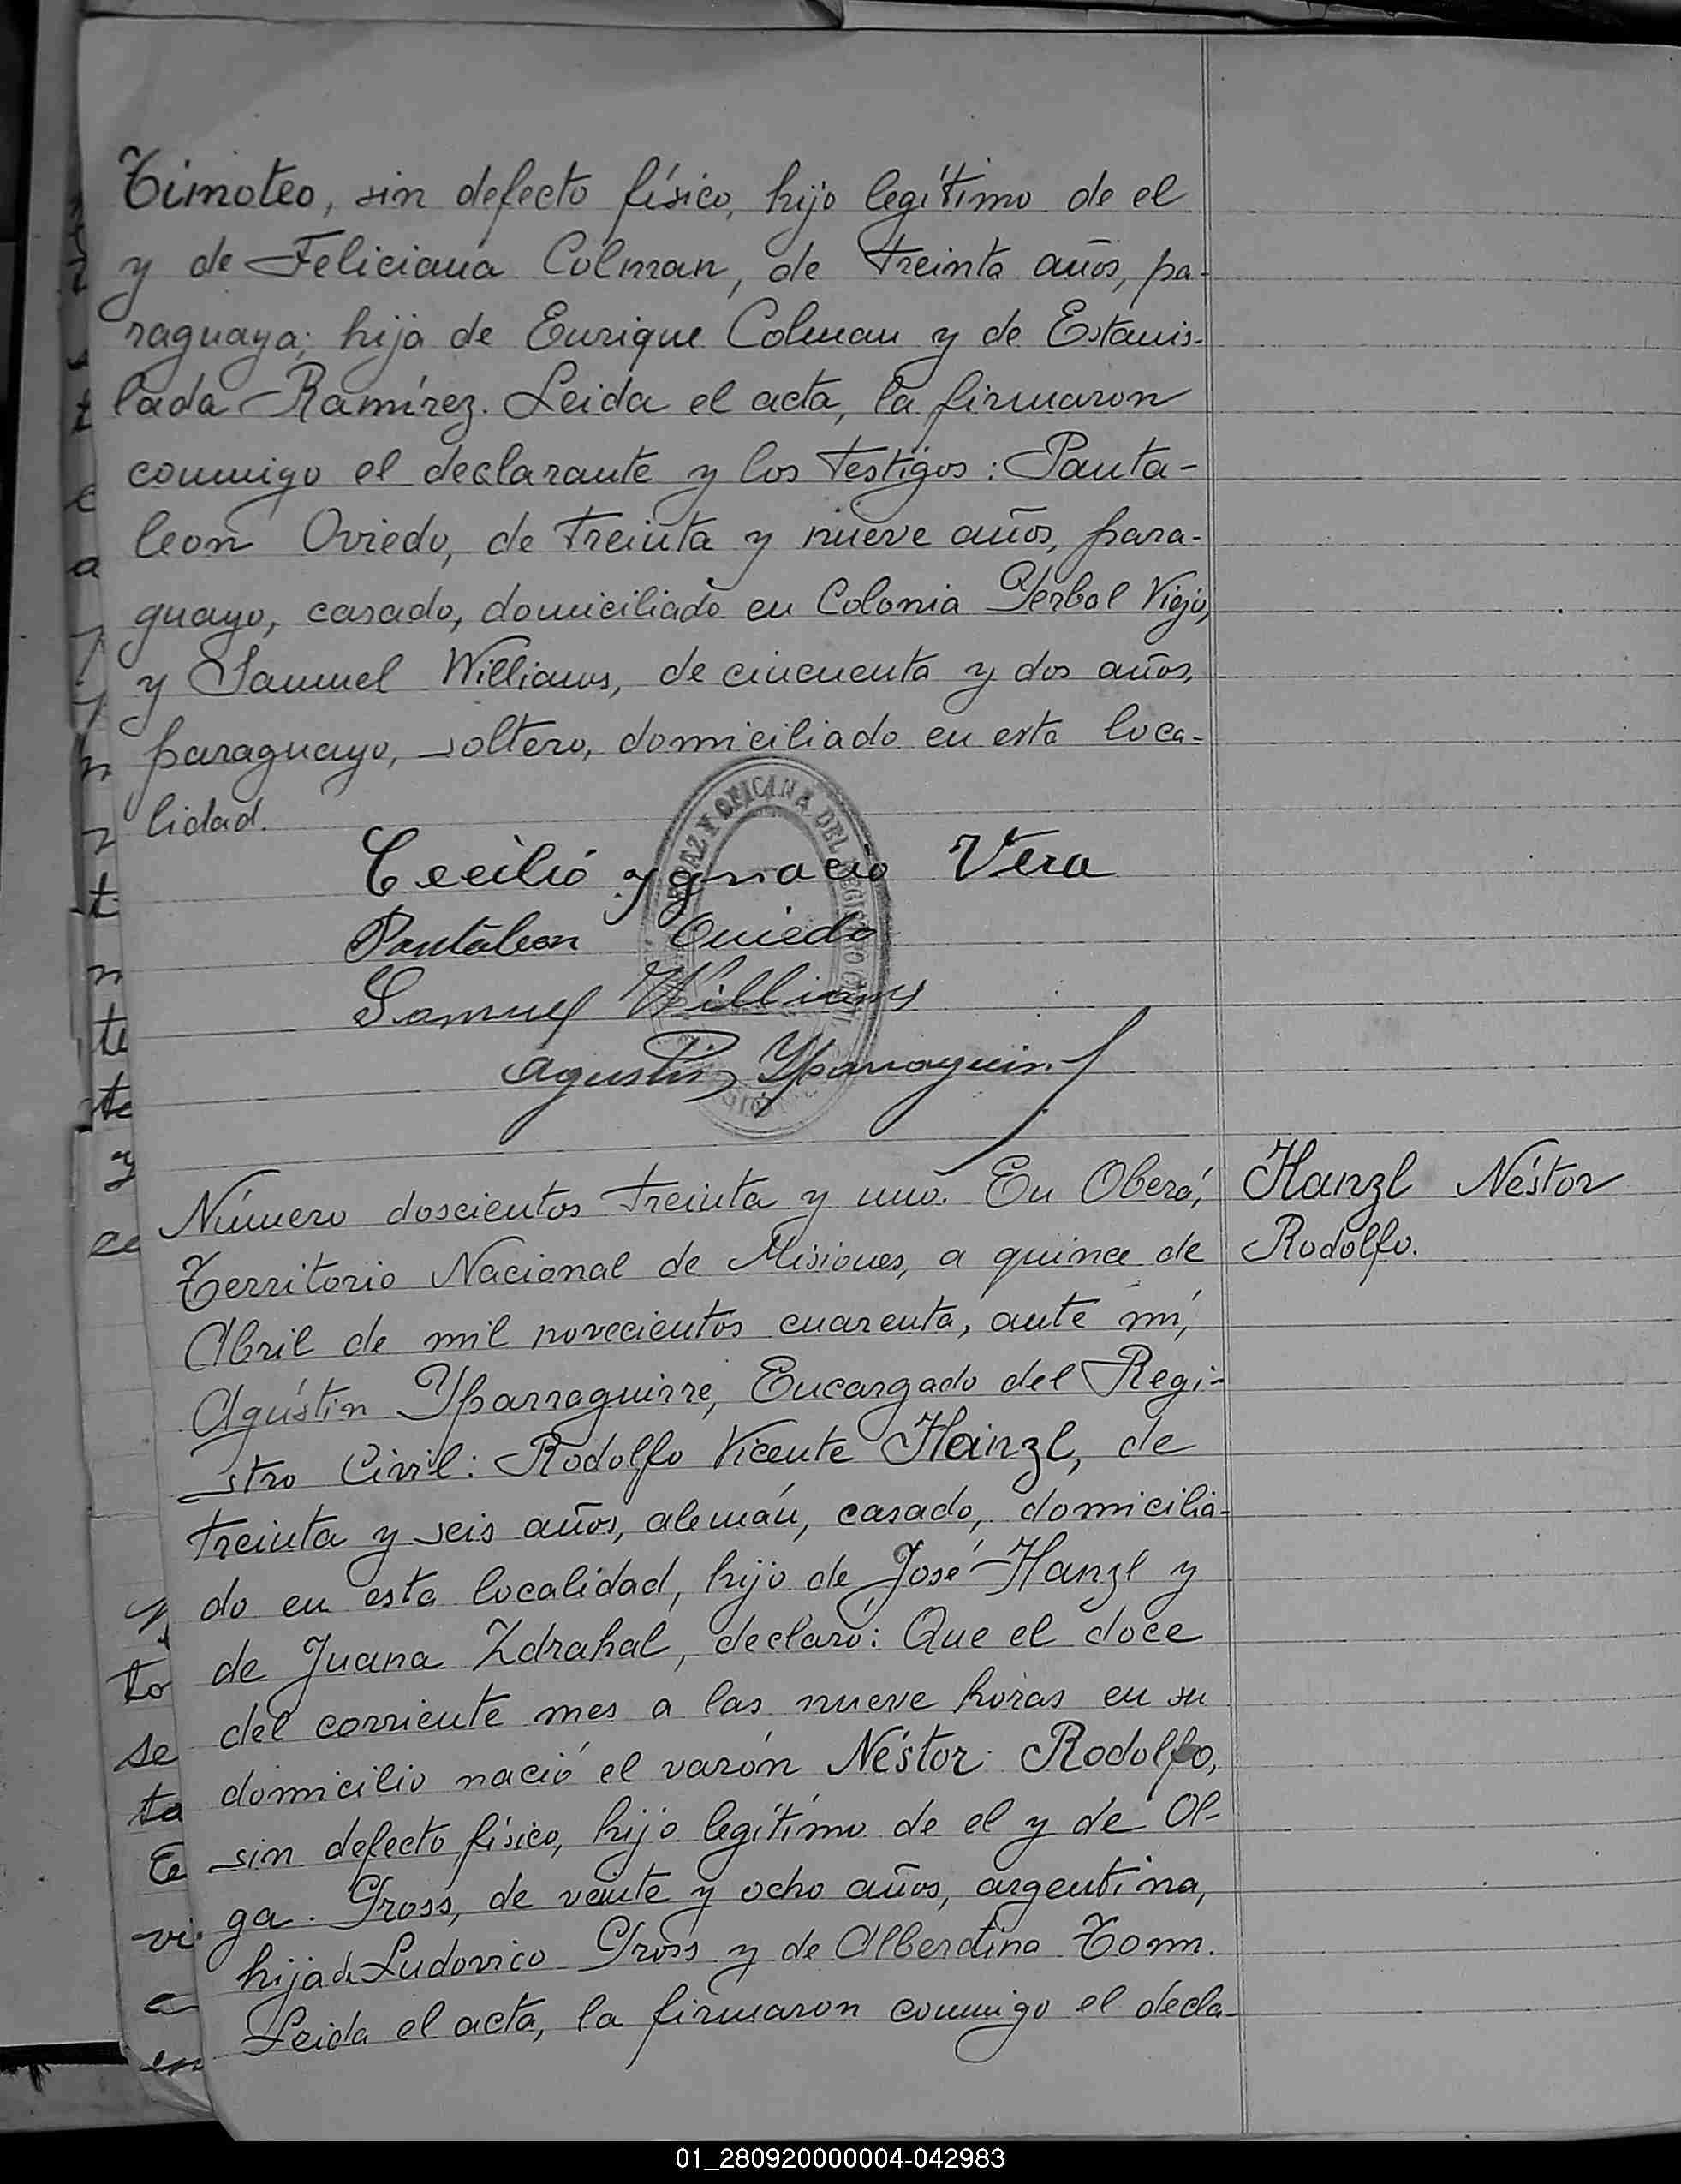 Timoteo, sin defecto físico, hijo legítimo de el
y de Feliciana Colman, de treinta años, pa-
raguaya; hija de Enrique Colman y de Estanis-
lada Ramírez. Leida el acta, la firmaron
conmigo el declarante y los testigos: Panta-
leon Oviedo, de treinta y nueve años, para-
guayo, casado, domiciliado en Colonia Yerbal Viejo,
y Samuel Williams, de cincuenta y dos años,
paraguayo, soltero, domiciliado en esta loca-
lidad.
Cecilió ygnacio Vera
Pantaleon Oviedo
Samuel Williams
Agustin Yparraguirre
PAZ Y OFICINA DEL REGISTRO CIVIL
Número doscientos treinta y uno. En Oberá,
Territorio Nacional de Misiones, a quince de
Abril de mil novecientos cuarenta, ante mí,
Agustín Yparraguirre, Encargado del Regi-
stro Civil: Rodolfo Vicente Hanzl, de
treinta y seis años, alemán, casado, domicilia-
do en esta localidad, hijo de José Hanzl y
de Juana Zdrahal, declaró: Que el doce
del corriente mes a las nueve horas en su
domicilio nació el varón Néstor Rodolfo,
sin defecto físico, hijo legítimo de el y de Ol-
ga Gross, de veinte y ocho años, argentina,
hija de Ludovico Gross y de Alberdina Tomm.
Leida el acta, la firmaron conmigo el decla-
Hanzl Néstor
Rodolfo.
01_280920000004-042983